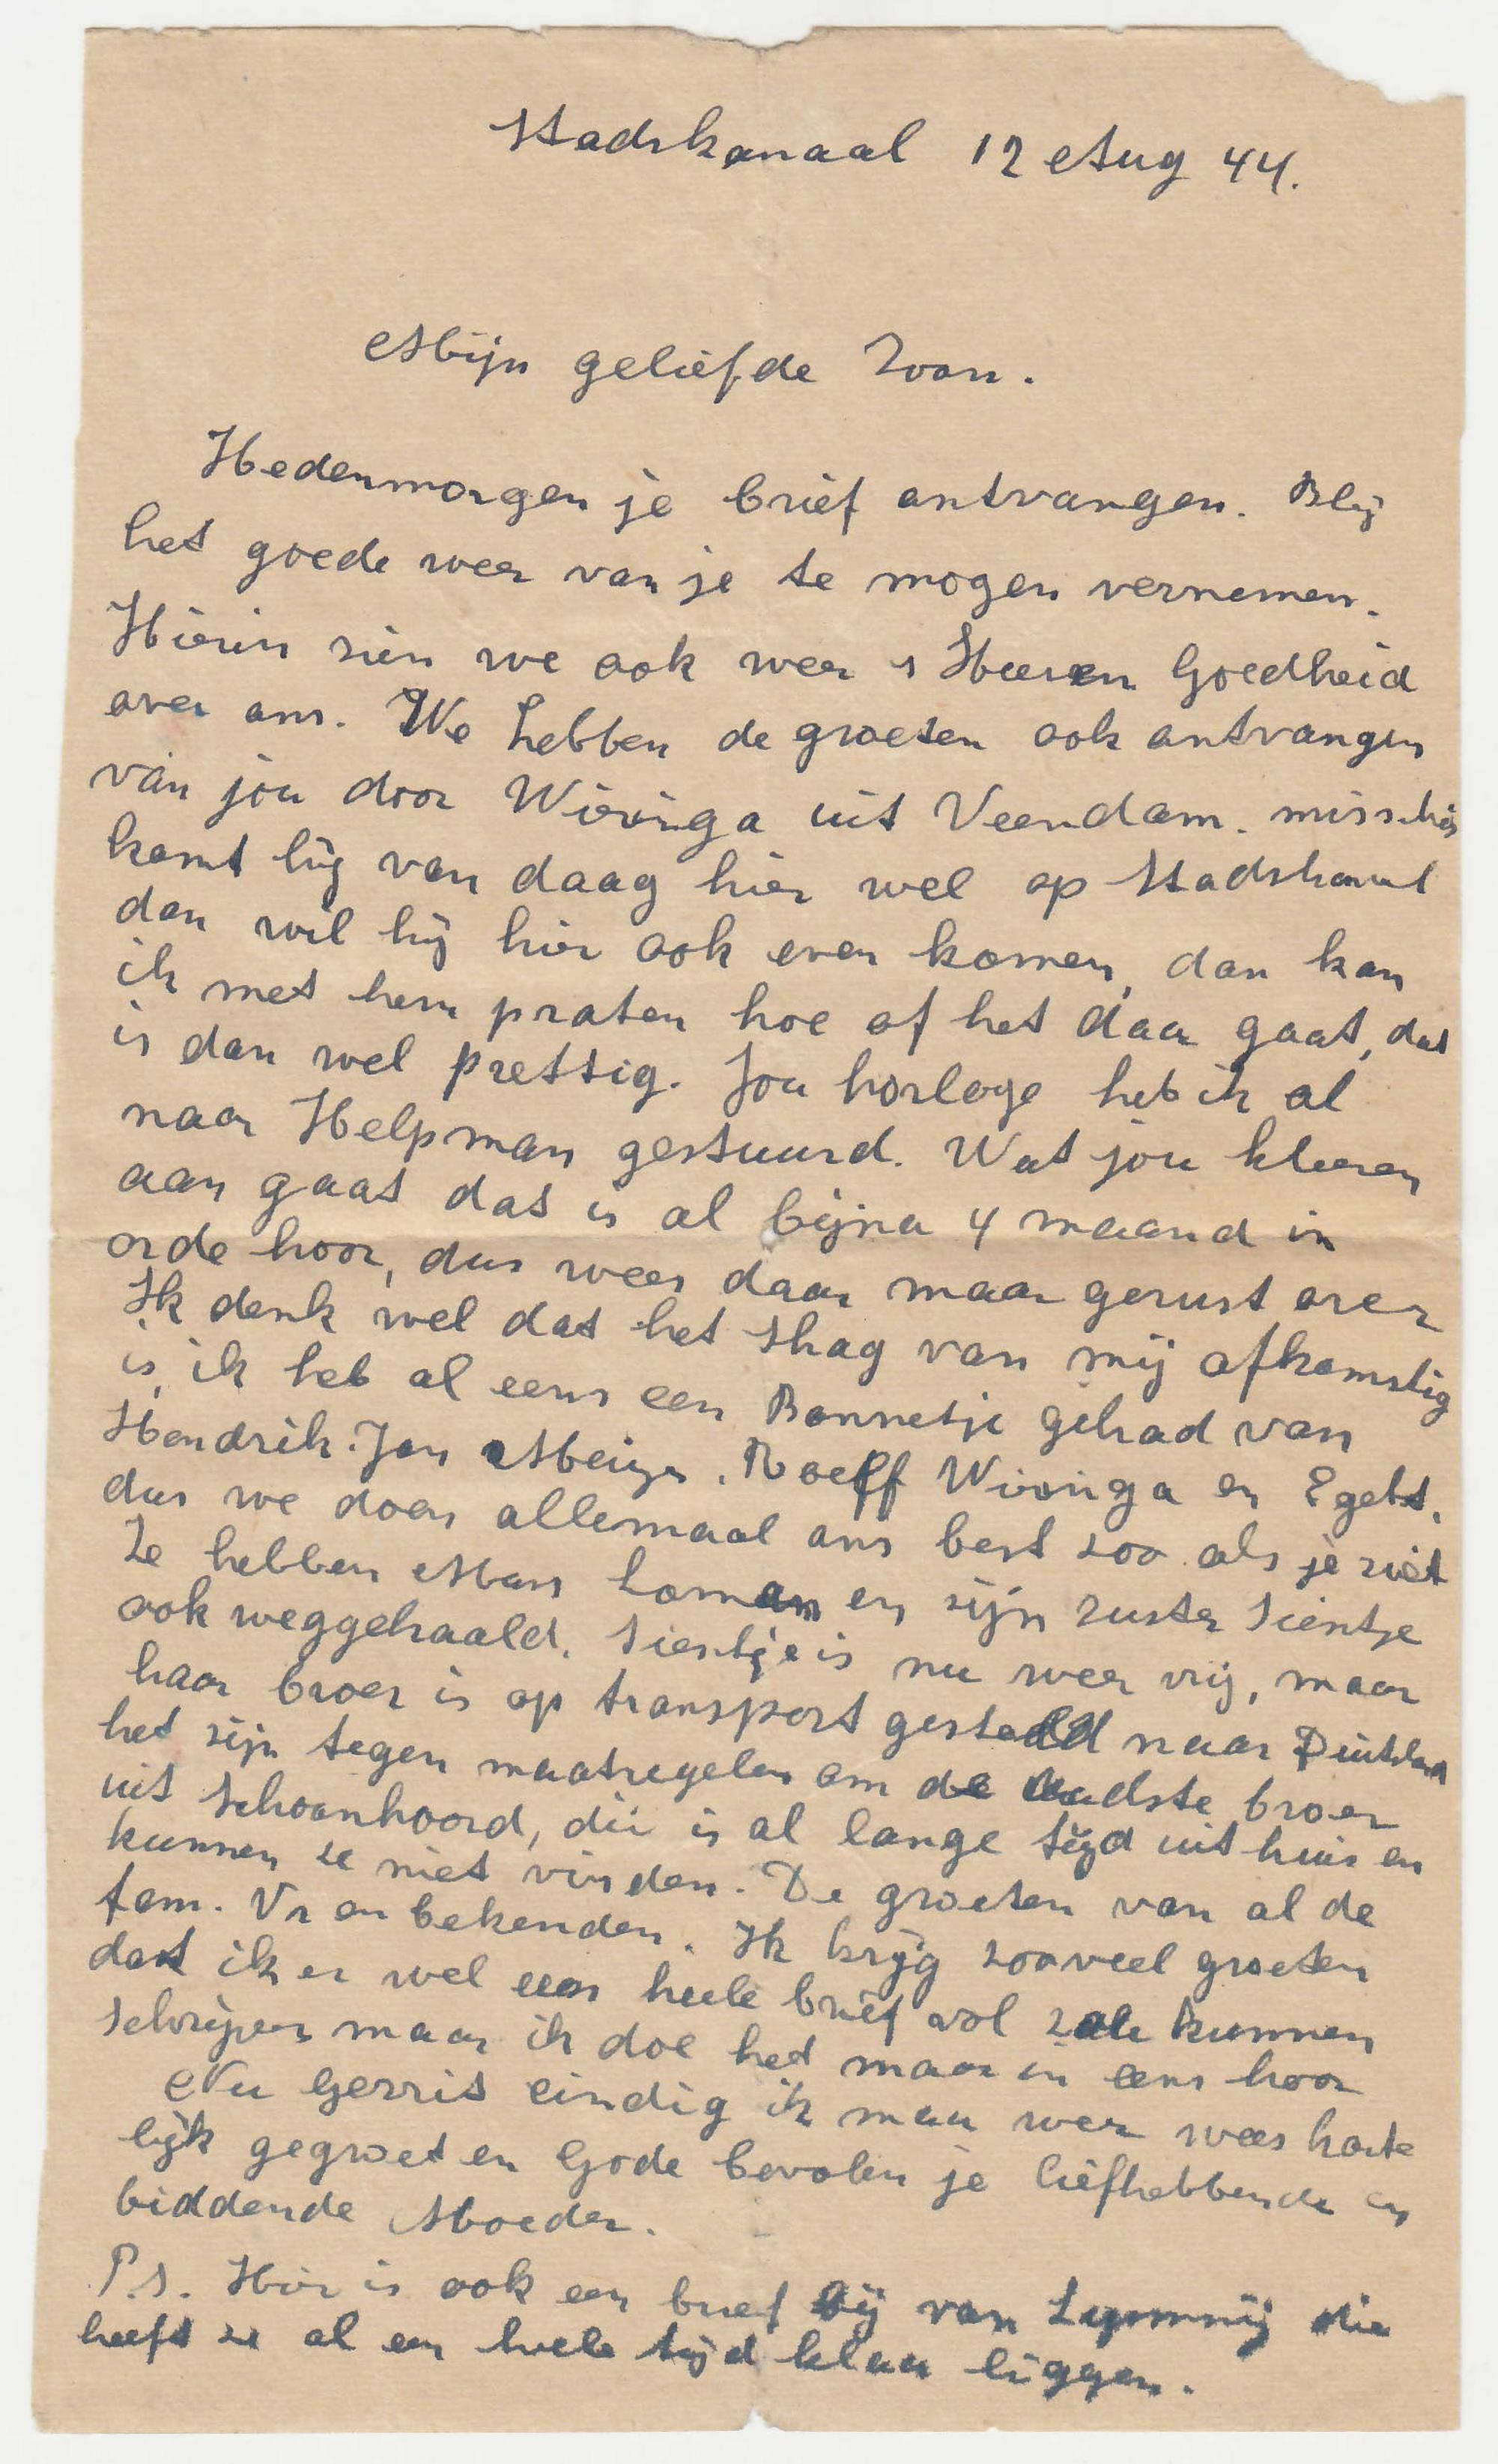 Stadskanaal 12 Aug 44.
Mijn geliefde Zoon.
Hedenmorgen je brief ontvangen. Blij
het goede weer van je te mogen vernemen.
Hierin zien we ook weer s Heeren Goedheid
over ons. We hebben de groeten ook ontvangen
van jou door Wieringa uit Veendam. misschien
komt hij van daag hier wel op Stadskanaal
dan wil hij hier ook even komen, dan kan
ik met hem praten hoe of het daar gaat, dat
is dan wel prettig. Jou horloge heb ik al
naar Helpman gestuurd. Wat jou kleeren
aan gaat dat is al bijna 4 maand in
orde hoor, dus wees daar maar gerust over
Ik denk wel dat het Shag van mij afkomstig
is, ik heb al eens een Bonnetje gehad van
Hendrik. Jan Meijer. Roelf Wieringa en Egbt.
dus we doen allemaal ons best zoo als je ziet
Ze hebben Mans Loman en zijn zuster Sientje
ook weggehaald. Sientje is nu weer vrij, maar
haar broer is op transport gesteld naar Duitsland
het zijn tegen maatregelen om de oudste broer
uit Schoonhoord, die is al lange tijd uit huis en
kunnen ze niet vinden. De groeten van al de
fam. Vr en bekenden. Ik krijg zooveel groeten
dat ik er wel een heele brief vol zou kunnen
schrijven maar ik doe het maar in eens hoor
Nu Gerrit eindig ik maar weer wees harte
lijk gegroet en Gode bevolen je liefhebbende en
biddende Moeder.
P.S. Hier is ook een brief bij van die
heeft ze al een heele tijd klaar liggen.